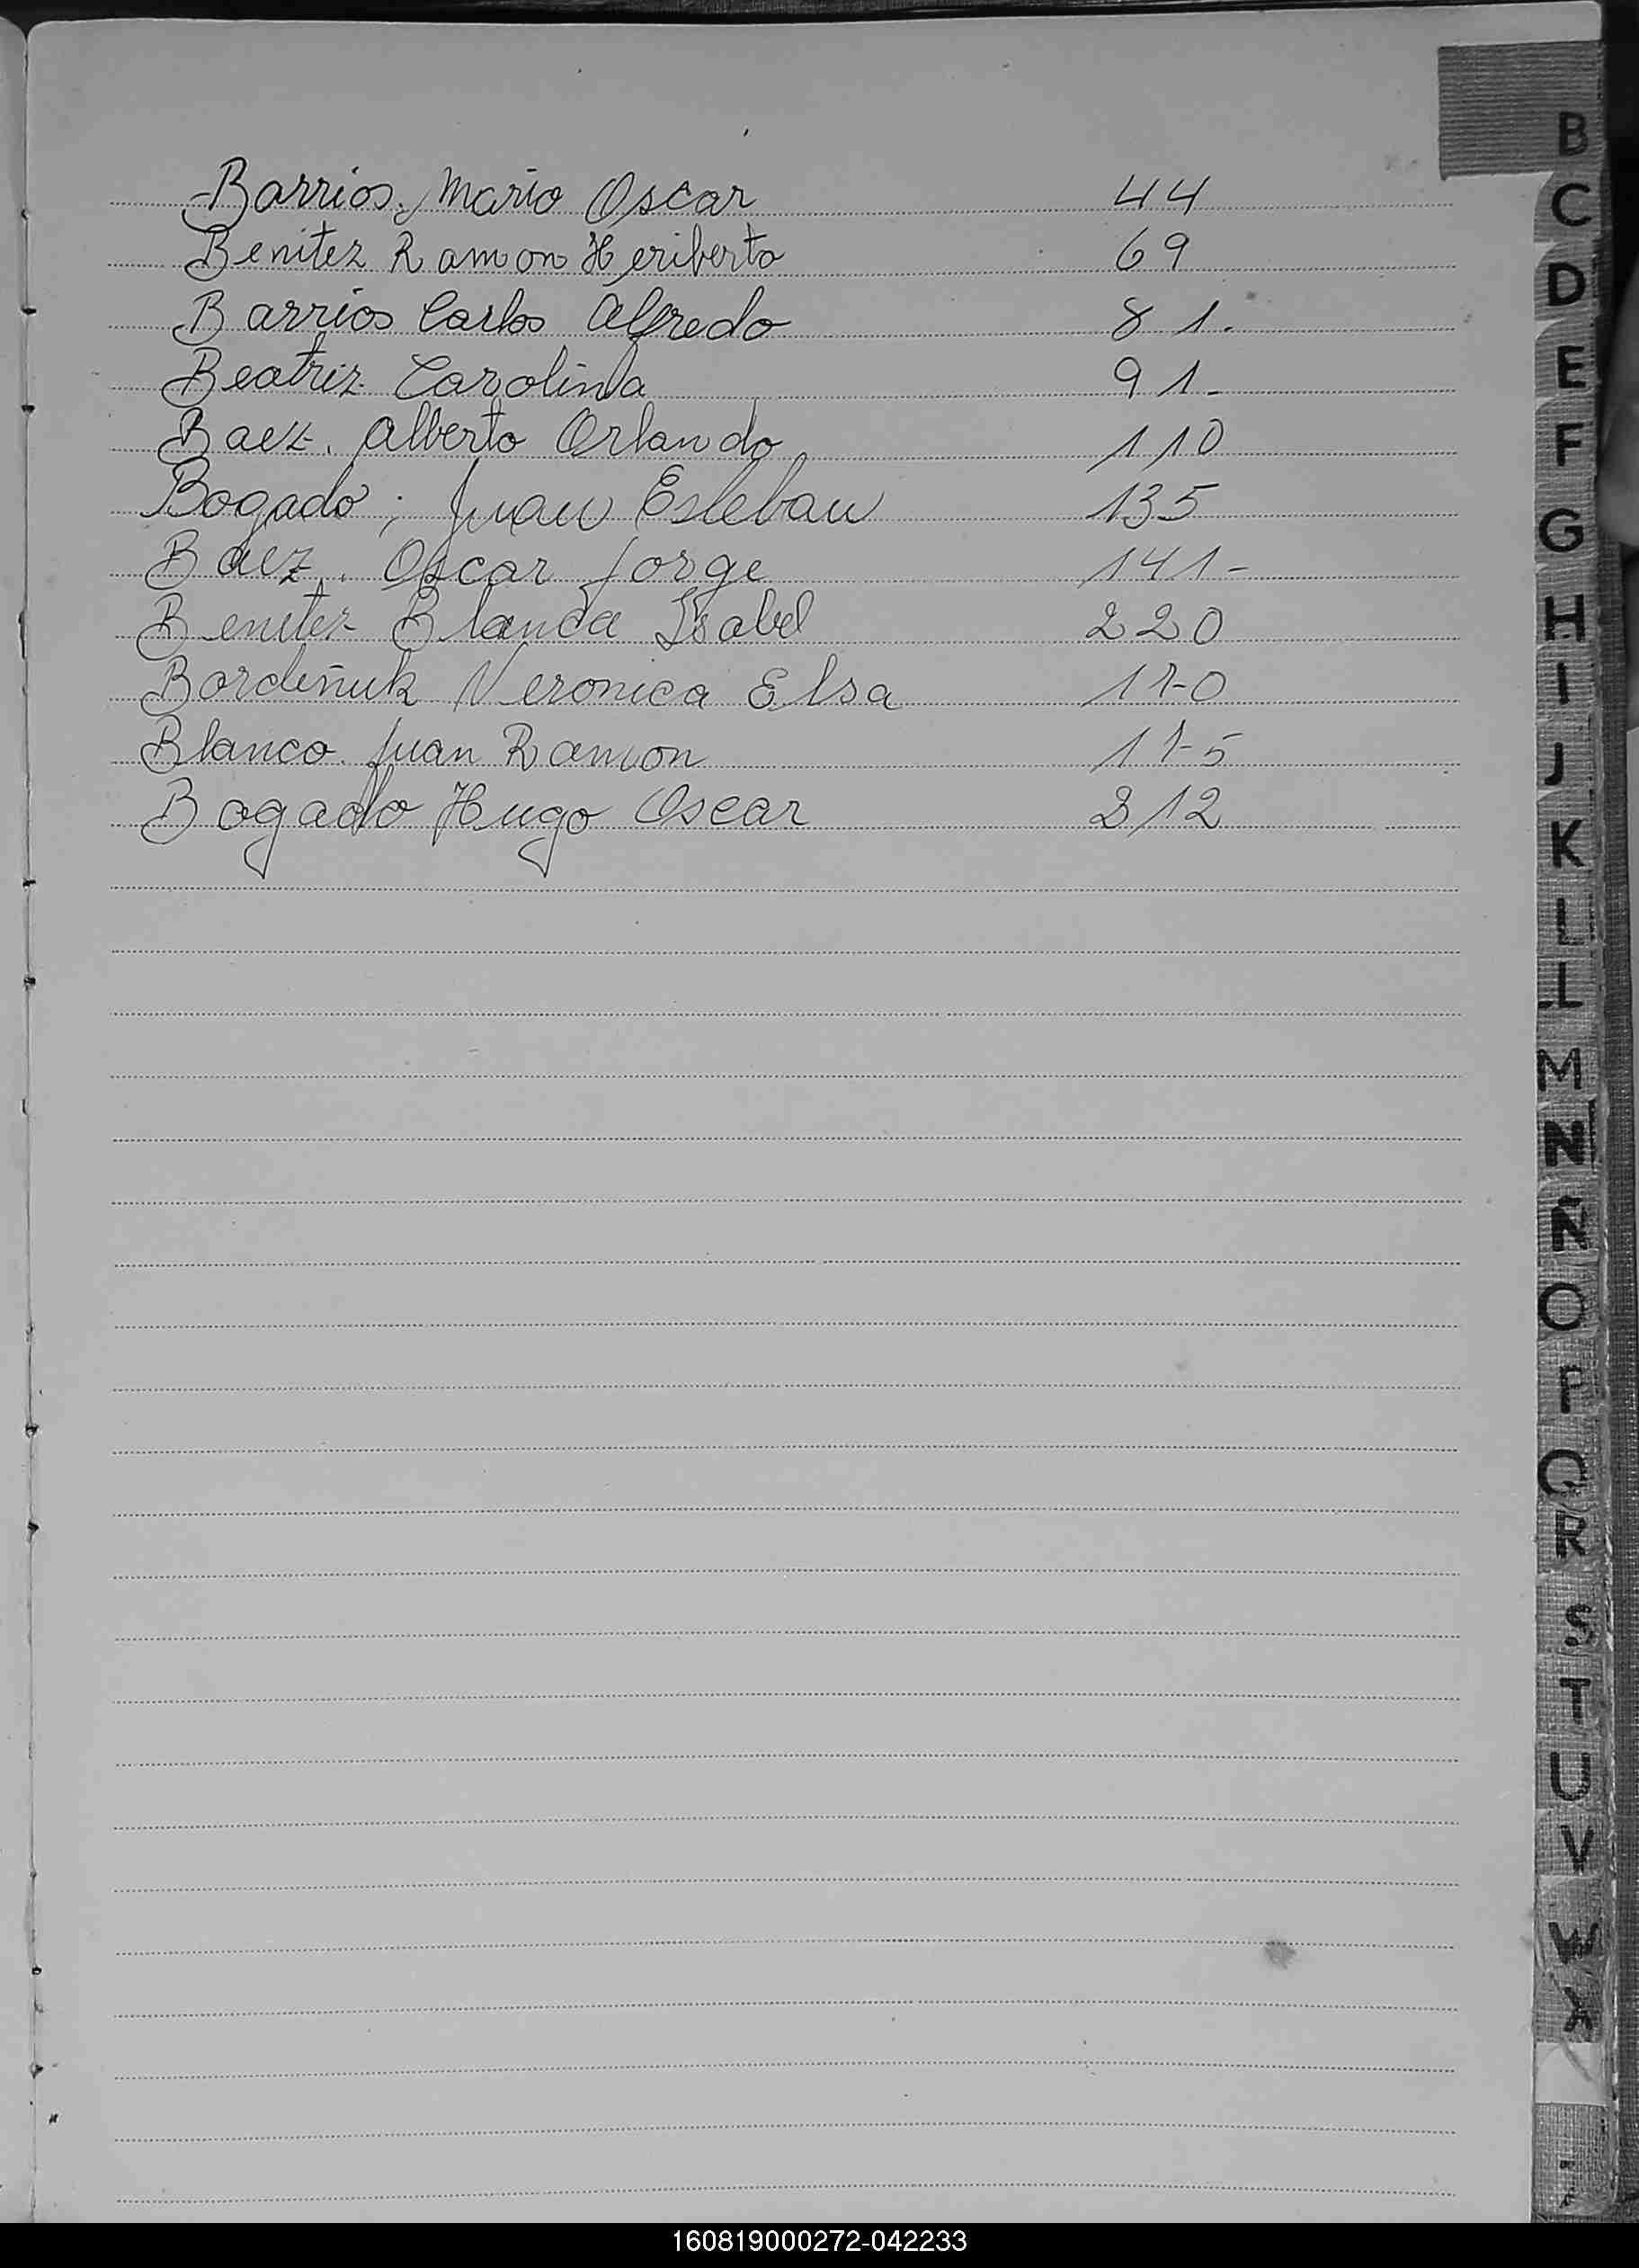 Barrios, Mario Oscar 44
Benitez Ramon Heriberto 69
Barrios Carlos Alfredo 81.
Beatriz Carolina 91-
Baez. Alberto Orlando 110
Bogado; Juan Esteban 135
Baez. Oscar Jorge 141-
Benitez Blanca Isabel 220
Bordeñuk Veronica Elsa 170
Blanco. Juan Ramon 175
Bogado Hugo Oscar 212
B
C
D
E
F
G
H
I
J
K
L
L
M
N
Ñ
O
P
Q
R
S
T
U
V
W
X
160819000272-042233